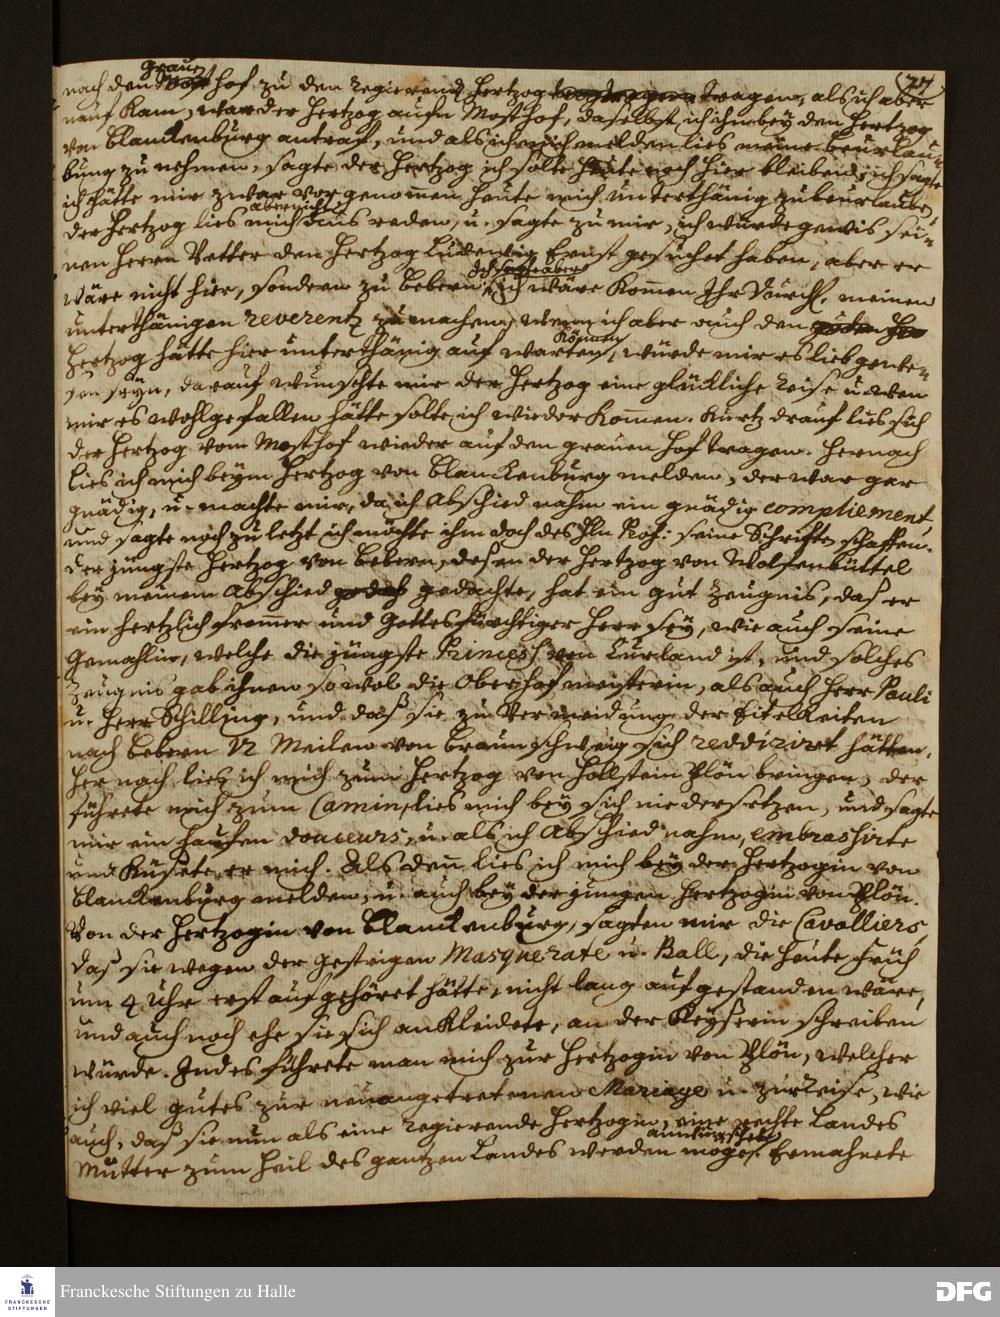 (27)
nach den grauen hof zu den Regierend. Hertzog tragen, als ich aber
nauf kam, war der Hertzog aufn Mosthof, daselbst ich ihn bey den Hertzog
von Blanckenburg antraf, und als ich mich melden lies meine beurlau-
bung zu nehmen, sagte der Hertzog ich solte heute noch hier bleiben, ich sagte
ich hätte mir zwar vorgenommen heute mich unterthänig zubeurlauben,
der Hertzog lies mich aber nicht aus reden, u. sagte zu mir, ich würde gewis sei-
nen Herrn Vetter den Hertzog Ludewig Ernst gesuchet haben, aber er
wäre nicht hier, sondern zu Bebern, Ich sagte aber ich wäre kommen Ihr Durchl. meinen
unterthänigen reverentz zu machen, wenn ich aber auch den
Hertzog hätte hier unterthänig auf warten können, würde mir es lieb gewe-
sen seyn, darauf wünschte mir der Hertzog eine glückliche Reise u. wen
mir es wohlgefallen hätte solte ich wieder kommen. Kurtz drauf lies sich
der Hertzog vom Mosthof wieder auf den grauen hof tragen. Hernach
lies ich mich beym Hertzog von Blanckenburg melden, der war gar
gnädig, u. machte mir, da ich Abschied nahm ein gnädig compliement,
und sagte noch zu letzt ich möchte ihm doch des Hln Prof: seine Schrifften schaffen.
Der jüngste Hertzog von Bebern, deßen der Hertzog von Wolfenbüttel
bey meinem Abschied gedachte, hat ein gut Zeugnis, daß er
ein hertzlich frommer und Gottesfürchtiger Herr sey, wie auch seine
Gemahlin, welche die jüngste Princeß von Curland ist, und solches
Zeugnis gab ihnen sowol die Oberhofmeisterin, als auch Herr Pauli
u. Herr Schilling, und daß sie zu Vermeidung der Eitelkeiten
nach Bebern 12 Meilen von Braunschweig sich reddiriret hätten.
Her nach lies ich mich zum Hertzog von Hollstein Plön bringen, der
führete mich zum Camin, lies mich bey sich niedersetzen, und sagte
mir ein haufen douceurs, u. als ich Abschied nahm, embrashirte
und küßete er mich. Als denn lies ich mich bey der Hertzogin von
Blanckenburg melden, u. auch bey der jungen Hertzogin von Plön.
Von der Hertzogin von Blanckenburg, sagten mir die Cavalliers,
daß sie wegen der gestrigen Masquerate u. Ball, die heute früh
um 4 Uhr erst aufgehöret hätte, nicht lang aufgestanden wäre,
und auch noch ehe sie sich ankleidete, an der Keyserin schreiben
würde. Indes führete man mich zur Hertzogin von Plön, welcher
ich viel gutes zur neuangetretenen Mariage u. zur Reise, wie
auch, daß sie nun als eine Regierende Hertzogin, eine rechte Landes
Mutter zum heil des gantzen Landes werden möge, anwünschete. Ermahnete
Franckesche Stiftungen zu Halle
FRANCKESCHE
STIFTUNGEN
DFG